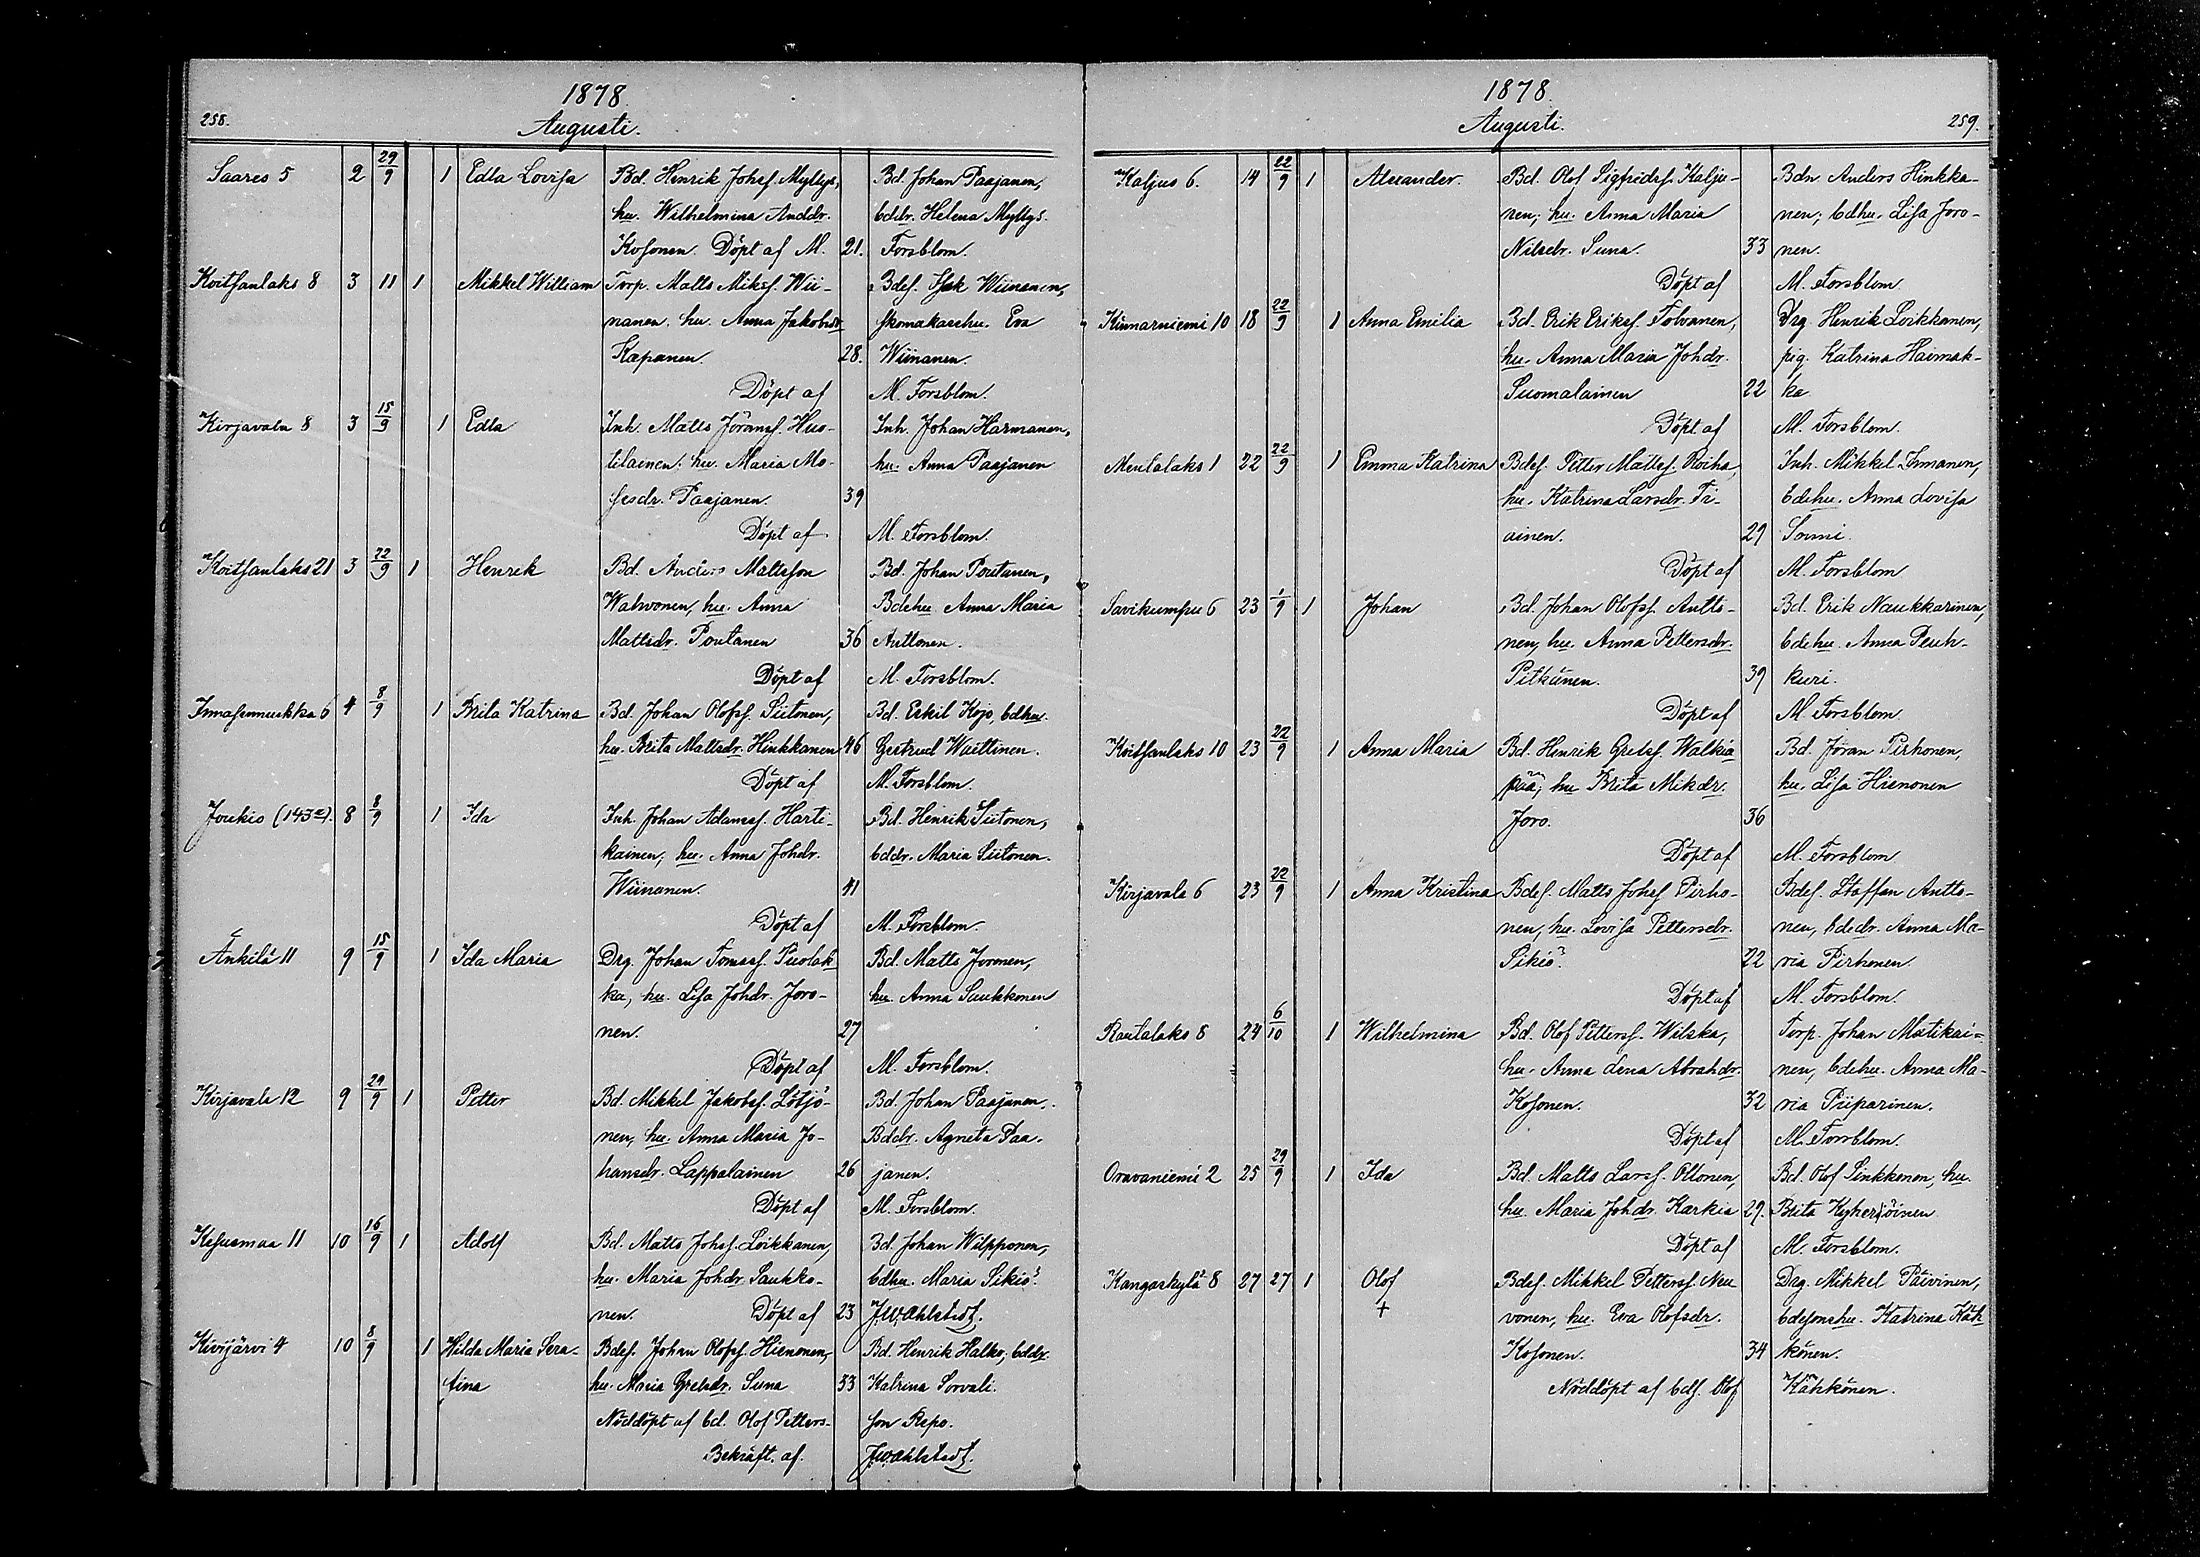 1878.
258.
Augusti.
Saares 5 2 29/9 1 Edla Lovisa Bd. Henrik Johsf. Myllys, Bd. Johan Paajanen,
hu. Wilhelmina Anddr. bddr. Helena Myllys.
Kosonen. Döpt af M. 21. Forsblom.
Koitsanlaks 8 3 11 1 Mikkel William Torp. Matts Miksf. Wii- Bdes. Isak Wiinanen,
nanen. hu. Anna Jakobsdr. skomakarehu. Eva
Kapanen. 28. Wiinanen.
Döpt af M. Forsblom.
Kirjavala 8 3 15/9 1 Edla Inh. Matts Göransf. Huo- Inh. Johan Harmanen,
tilainen. hu. Maria Mo- hu. Anna Paajanen
sesdr. Paajanen. 39
Döpt af M. Forsblom.
Koitsanlaks 21 3 22/9 1 Henrik Bd. Anders Mattsson Bd. Johan Poutanen,
Wahvonen, hu. Anna Bdehu Anna Maria
Mattsdr. Poutanen 36 Anttonen.
Döpt af M. Forsblom.
6 4 8/9 1 Brita Katrina Bd. Johan Olofsf. Siitonen, Bd. Eskil Kojo, bdhu.
hu. Brita Mattsdr. Hinkkanen 46 Gertrud Wasttinen.
Döpt af M. Forsblom.
Joukio 8 8/9 1 Ida Inh. Johan Adamsf. Harti- Bd. Henrik Siitonen,
kainen, hu. Anna Johdr. bddr. Maria Siitonen.
Wiinanen. 41
Döpt af M. Forsblom.
Änkilä 11 9 15/9 1 Ida Maria Drg. Johan Tomasf. Puolak Bd. Matts Joronen,
ka, hu. Lisa Johdr. Joro- hu. Anna Saukkonen
nen. 27
Döpt af M. Forsblom.
Kirjavala 12 9 29/9 1 Petter Bd. Mikkel Jakobsf. Lötjö- Bd. Johan Paajanen,
nen, hu. Anna Maria Jo- Bddr. Agneta Paa-
hansdr. Lappalainen 26 janen.
Döpt af M. Forsblom.
Kesusmaa 11 10 16/9 1 Adolf Bd. Matts Johsf. Loikkanen, Bd. Johan Wilpponen,
hu. Maria Johdr. Saukko- bdhu. Maria Sikiö.
nen. Döpt af 23 JWahlstedt.
Kivijärvi 4 10 8/9 1 Hilda Maria Sera- Bdes. Johan Olofsf. Hienonen, Bd. Henrik Halko, bddr.
fina hu. Maria Grelsdr. Suna 33 Katrina Sorvali.
Nöddöpt af bd. Olof Petters- son Repo.
Bekräft. af. JWahlstedt.
1878.
Augusti. 259.
Kaljus 6. 14 22/9 1 Alexander. Bd. Olof Sigfridsf. Kalju- Bdn Anders Hinkka-
nen, hu. Anna Maria nen; bdhu. Lisa Joro-
Nilsdr. Suna. 33 nen.
Döpt af M. Forsblom
Kinnarniemi 10 18 22/9 1 Anna Emilia Bd. Erik Eriksf. Tolvanen, Drg Henrik Loikkanen,
hu. Anna Maria Johdr. pig. Katrina Haimak-
Suomalainen 22 ka.
Döpt af M. Forsblom.
Mentalaks 1 22 22/9 1 Emma Katrina Bdes. Petter Mattsf. Roiha, Inh. Mikkel Inmanen,
hu. Katrina Larsdr. Ti- bdehu. Anna Lovisa
ainen. 29 Soini.
Döpt af M. Forsblom
Savikumpu 6 23 1/9 1 Johan Bd. Johan Olofsf. Antto- Bd. Erik Naukkarinen,
nen, hu. Anna Pettersdr. bdehu. Anna Peuh-
Pitkänen. 39 kuri.
Döpt af M. Forsblom
Koitsanlaks 10 23 22/9 1 Anna Maria Bd. Henrik Grelsf. Walkia Bd. Jöran Pirhonen,
pää, hu Brita Mikdr. hu. Lisa Hienonen
Joro. 36
Döpt af M. Forsblom
Kirjavala 6 23 22/9 1 Anna Kristina Bdes. Matts Johsf. Pirho- Bdes. Staffan Antto-
nen, hu. Lovisa Pettersdr. nen, bdedr. Anna Ma-
Sikiö. 22 ria Pirhonen
Döpt af M. Forsblom.
Rautalaks 8 24 6/10 1 Wilhelmina Bd. Olof Pettersf. Wilska, Torp. Johan Matikai-
hu. Anna Lena Abrahdr. nen, bdehu. Anna Ma-
Kosonen. 32 ria Piiparinen.
Döpt af M. Forsblom.
Oravaniemi 2 25 29/9 1 Ida Bd. Matts Larsf. Ollonen, Bd. Olof Sinkkonen, hu.
hu. Maria Johdr. Karkia 29. Brita
Döpt af M. Forsblom.
Kangaskylä 8 27 27 1 Olof Bdes. Mikkel Pettersf. Neu Drg. Mikkel Päivinen,
+ vonen, hu. Eva Olofsdr. bdesonshu. Katrina Käh
Kosonen. 34 könen.
Nöddöpt af bds. Olof Kähkönen.